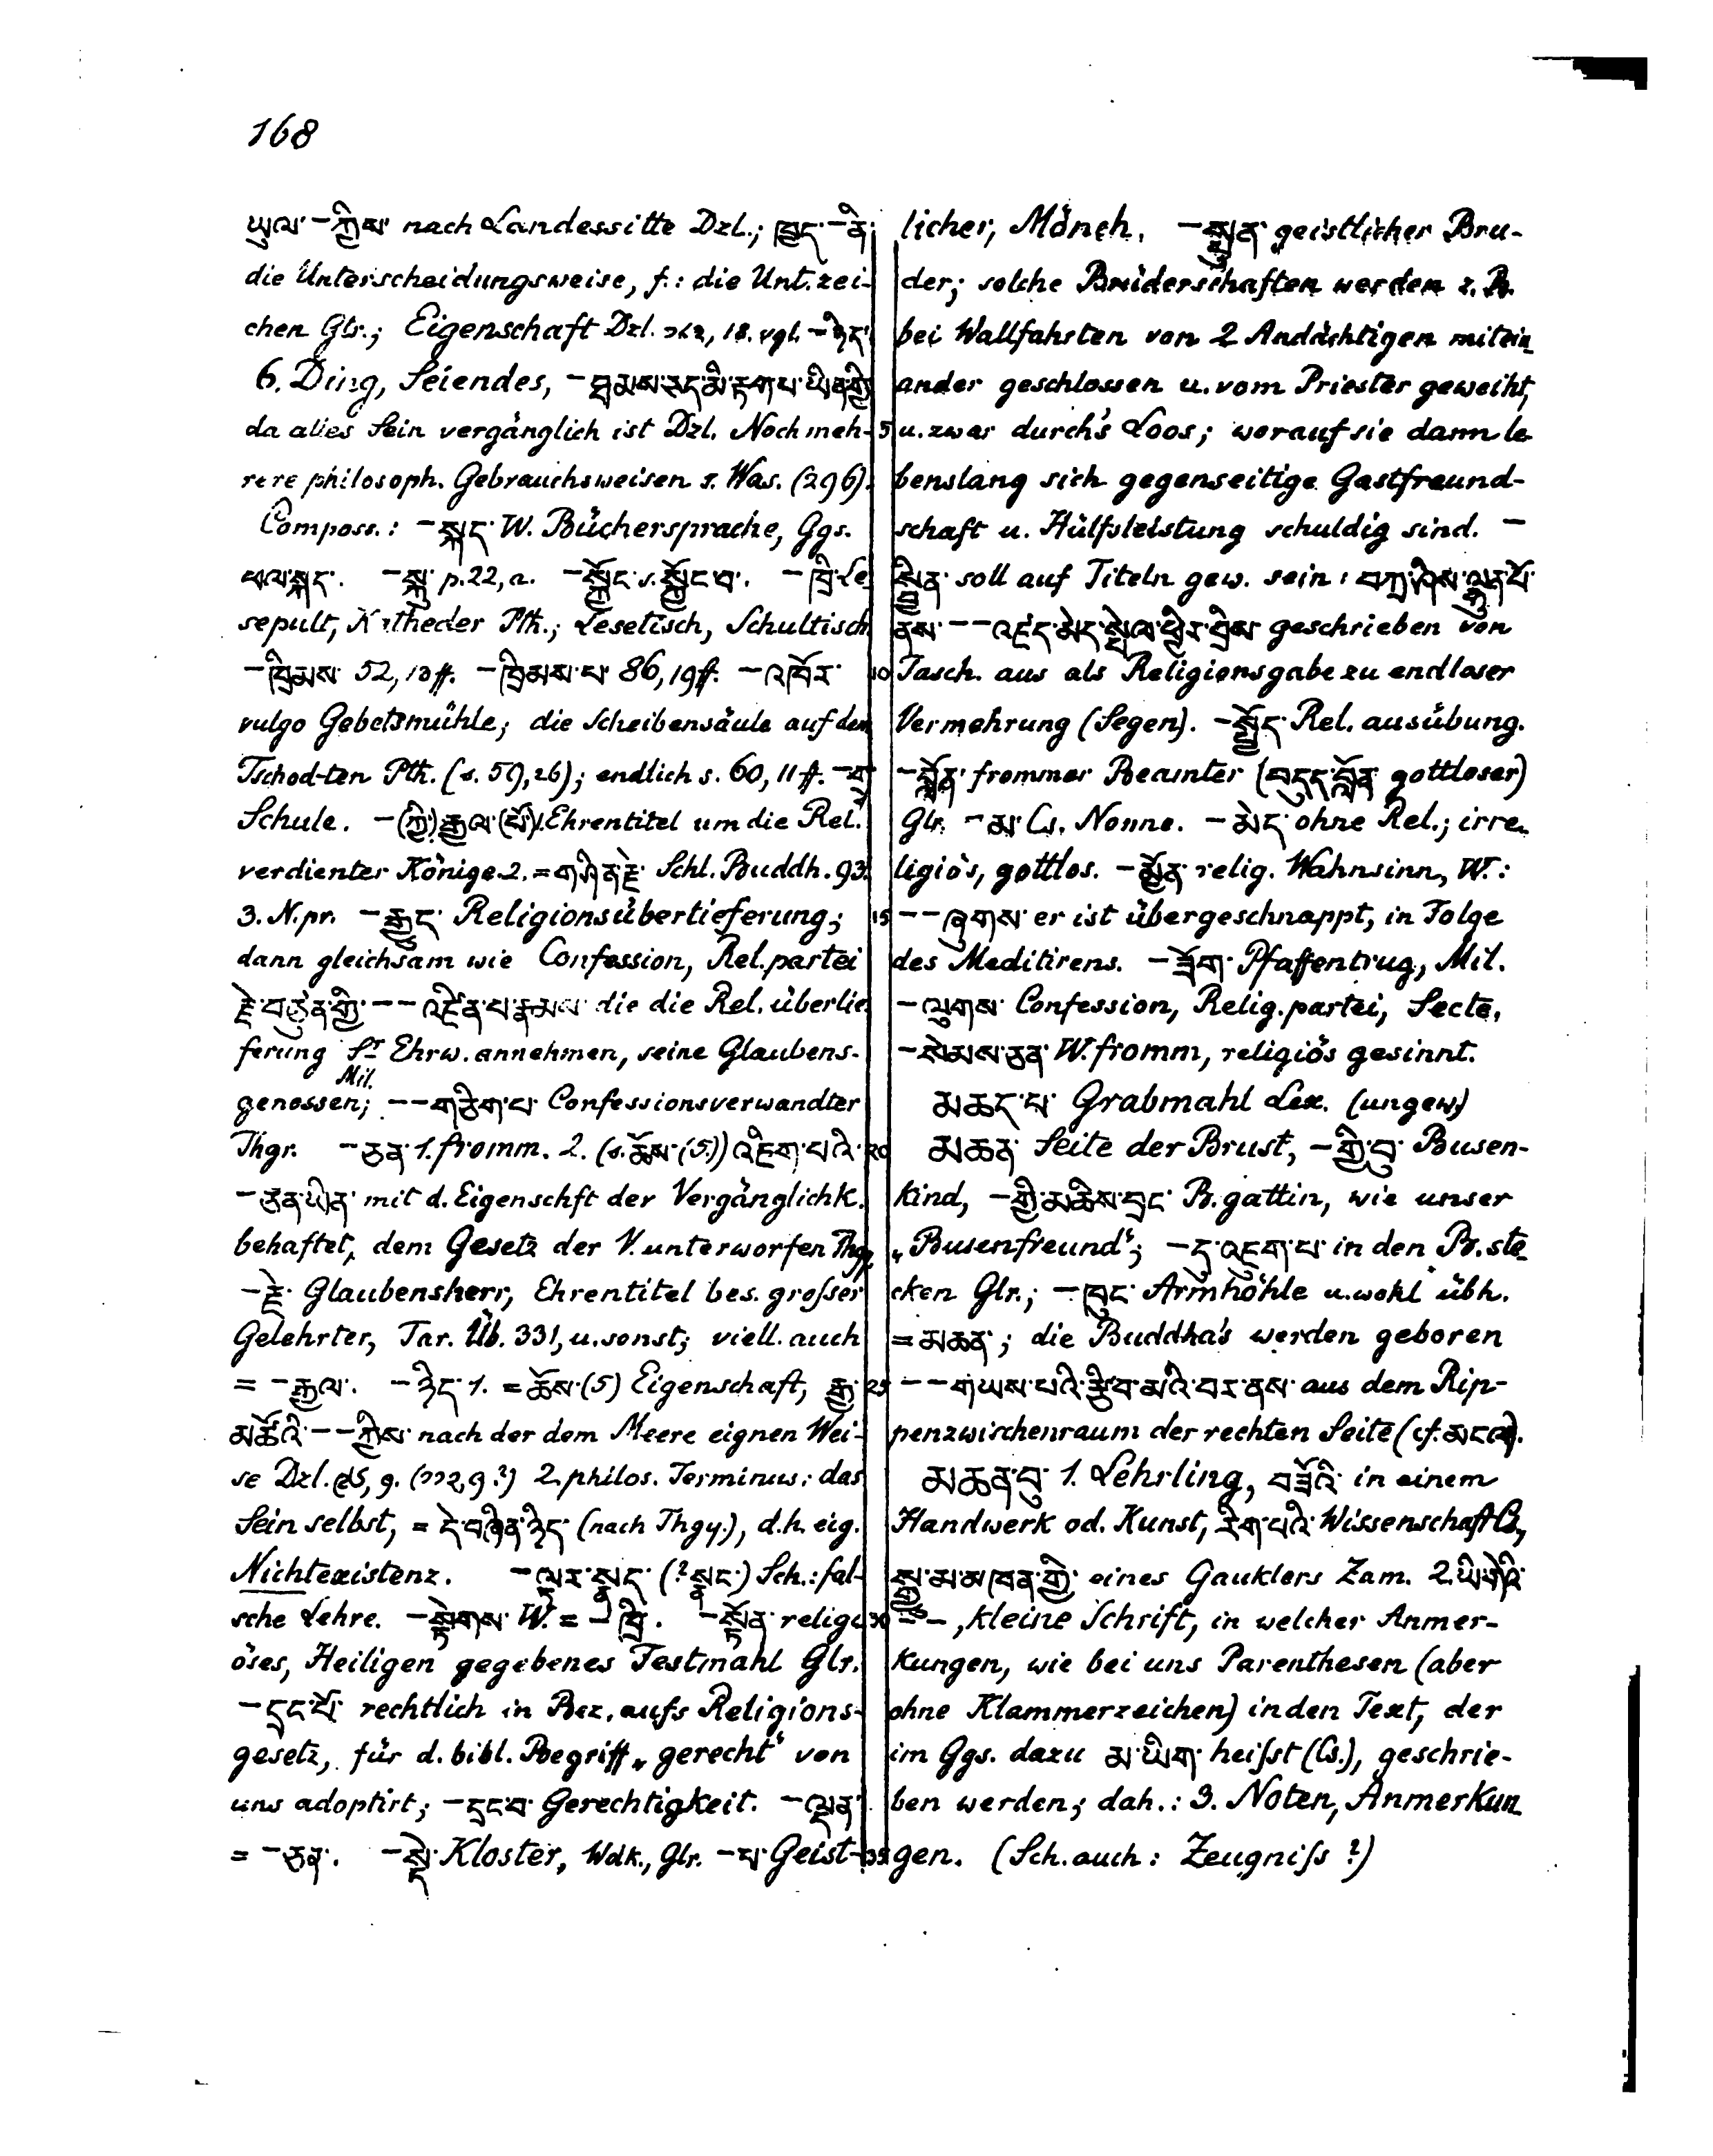 168
ཡུལ་ – ཀྱིས་ nach Landessitte Dzl.; ཁྱད་ – ནི་
die Unterscheidungsweise, f.: die Unt. zei-
chen Glr.; Eigenschaft Dzl. 18. vgl. – ཉིད་
6. Ding, Seiendes, – ཐམས་ཅད་མི་རྟག་པ་ཡིན་གྱི་
da alles Sein vergänglich ist Dzl. Noch meh-
rere philosoph. Gebrauchsweisen s. Was. (296).
Composs.: – སྐད་ W. Büchersprache, Ggs.
ཕལ་སྐད་. – སྐུ་ p. 22, a. – སྐྱོང་ s. སྐྱོང་བ་. – ཁྲི་ Le
sepult, Katheder Pth.; Lesetisch, Schultisch
– ཁྲིམས་ 52, 13 ff. – ཁྲིམས་པ་ 86, 19 ff. – འཁོར་
vulgo Gebetsmühle; die Scheibensäule auf den
Tschod-ten Pth. (s. 59, 26); endlich s. 60, 11 ff. – གྲྭ་
Schule. – (ཀྱི་) རྒྱལ་ (པོ་) 1. Ehrentitel um die Rel.
verdienter Könige. 2. = གཤིན་རྗེ་ Schl. Buddh. 93.
3. N. pr. – རྒྱུད་ Religionsüberlieferung;
dann gleichsam wie Confession, Rel. partei
རྗེ་བཙུན་གྱི་ – – འཛིན་པ་རྣམས་ die die Rel. überlie
ferung Sr Ehrw. annehmen, seine Glaubens-
Mil.
genossen; – – གཅིག་པ་ Confessionsverwandter
Thgr. – ཅན་ 1. fromm. 2. (s. ཆོས་ (5.)) འཇིག་པའི་
– ཅན་ཡིན་ mit d. Eigenschft der Vergänglichk.
behaftet, dem Gesetz der V. unterworfen Thgy.
– རྗེ་ Glaubensherr, Ehrentitel bes. grosser
Gelehrter, Tar. Üb. 331, u. sonst; viell. auch
= – རྒྱལ་. – ཉིད་ 1. = ཆོས་ (5) Eigenschaft, རྒྱ་
མཚོའི་ – – ཀྱིས་ nach der dem Meere eignen Wei-
se Dzl. 9. 2. philos. Terminus: das
Sein selbst, = དེ་བཞིན་ཉིད་ (nach Thgy.), d. h. eig.
Nichtexistenz. – ལྟར་སྣང་ (? སྣང་) Sch.: fal-
sche Lehre. – སྟེགས་ W. = – ཁྲི་. – སྟོན་ religi
öses, Heiligen gegebenes Festmahl Glr.
– དྲང་པོ་ rechtlich in Bez. aufs Religions-
gesetz, für d. bibl. Begriff „gerecht“ von
uns adoptirt; – དྲང་བ་ Gerechtigkeit. – ལྡན་
= – ཅན་. – སྡེ་ Kloster, Wdk., Glr. – པ་ Geist-
licher, Mönch. – སྤུན་ geistlicher Bru-
der; solche Brüderschaften werden z. B.
bei Wallfahrten von 2 Andächtigen mitein
ander geschlossen u. vom Priester geweiht,
5 u. zwar durch's Loos; worauf sie dann le
benslang sich gegenseitige Gastfreund-
schaft u. Hülfsleistung schuldig sind. –
སྦྱིན་ soll auf Titeln gew. sein: བཀྲ་ཤིས་ལྷུན་པོ་
ནས་ – – འཛད་མེད་སྤེལ་ཕྱིར་བྲིས་ geschrieben von
10 Tasch. aus als Religionsgabe zu endloser
Vermehrung (Segen). – སྤྱོད་ Rel. ausübung.
– བློན་ frommer Beamter (བདུད་བློན་ gottloser)
Glr. – མ་ Cs. Nonne. – མེད་ ohne Rel.; irre-
ligiös, gottlos. – སྨྱོན་ relig. Wahnsinn, W.:
15 – – ཞུགས་ er ist übergeschnappt, in Folge
des Meditirens. – ཟོག་ Pfaffentrug, Mil.
– ལུགས་ Confession, Relig. partei, Secte.
– སེམས་ཅན་ W. fromm, religiös gesinnt.
མཆད་པ་ Grabmahl Lex. (ungew.)
20 མཆན་ Seite der Brust, – གྱི་བུ་ Busen-
kind, – གྱི་མཆིས་བྲང་ B. gattin, wie unser
„Busenfreund“; – དུ་འཇུག་པ་ in den B. ste
cken Glr.; – ཁུང་ Armhöhle u. wohl übh.
= མཆན་; die Buddha's werden geboren
25 – – གཡས་པའི་རྩིབ་མའི་བར་ནས་ aus dem Rip-
penzwischenraum der rechten Seite (cf. མངལ་).
མཆན་བུ་ 1. Lehrling, བཟོའི་ in einem
Handwerk od. Kunst, རིག་པའི་ Wissenschaft B.,
སྒྱུ་མ་མཁན་གྱི་ eines Gauklers Zam. 2. ཡི་གེའི་
30 – – , kleine Schrift, in welcher Anmer-
kungen, wie bei uns Parenthesen (aber
ohne Klammerzeichen) in den Text, der
im Ggs. dazu མ་ཡིག་ heisst (Cs.), geschrie-
ben werden; dah.: 3. Noten, Anmerkun
35 gen. (Sch. auch: Zeugniss?)